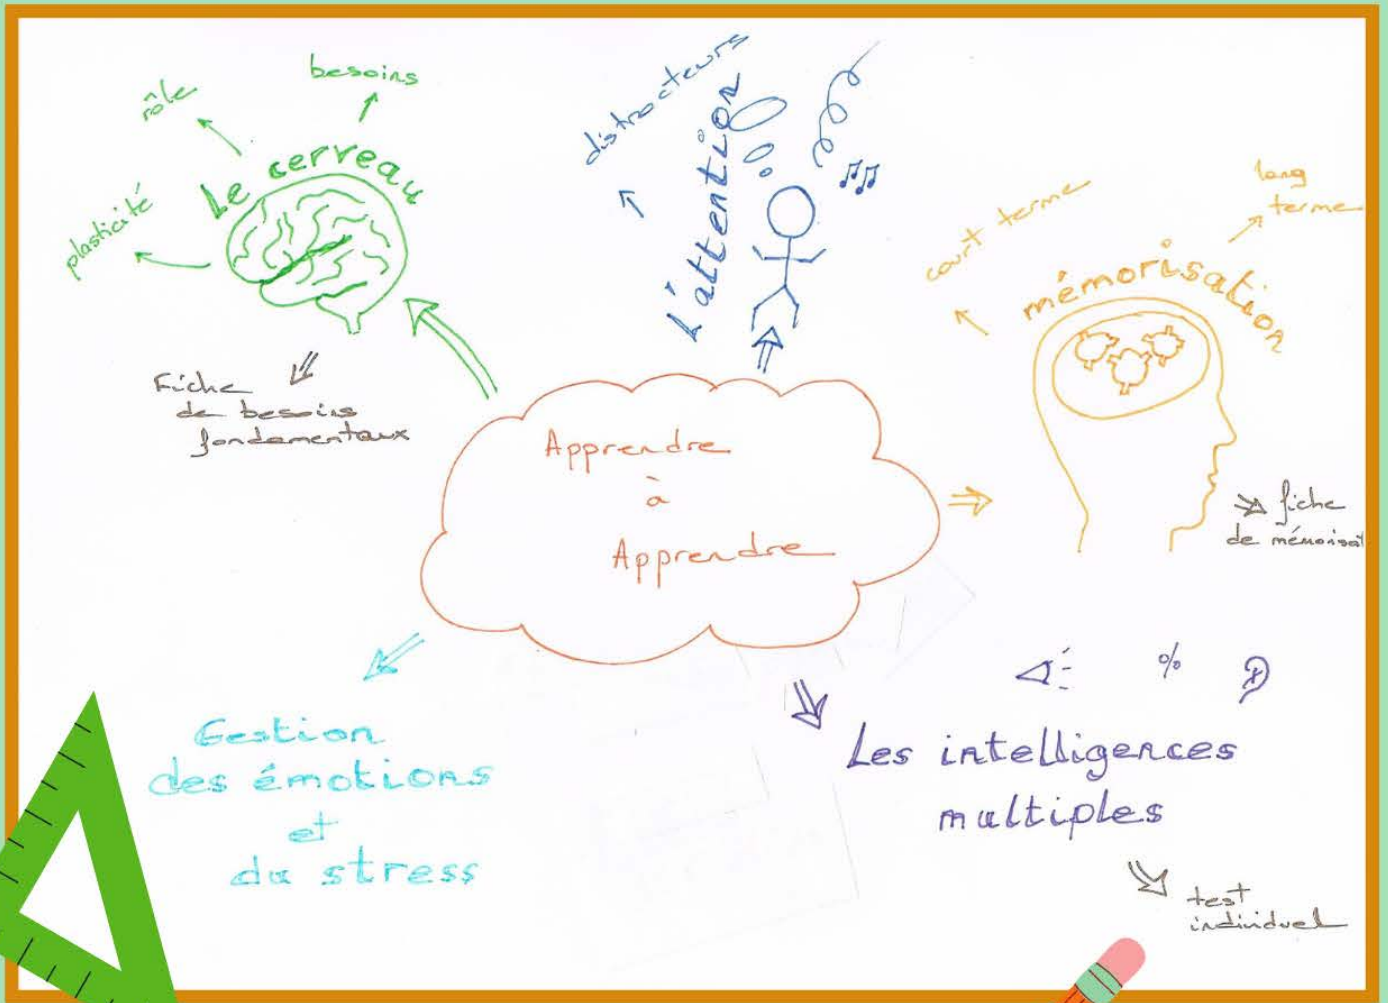 besoins
rôle
Le cerveau
plasticité
Fiche
de besoins
fondamentaux
distracteurs
L'attention
court terme
long
terme
mémorisation
fiche
de mémorisat
Apprendre
à
Apprendre
Gestion
des émotions
et
du stress
%
Les intelligences
multiples
test
individuel